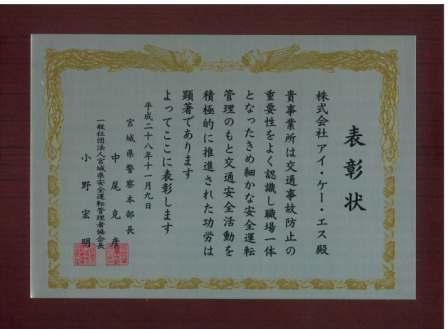 表彰状
株式会社 アイ・ケー・エス 殿
貴事業所は交通事故防止の
重要性をよく認識し職場一体
となったきめ細かな安全運転
管理のもと交通安全活動を
積極的に推進された功労は
顕著であります
よってここに表彰します
平成二十八年十一月九日
宮城県警察本部長
中尾克彦
一般社団法人宮城県安全運転管理者協会長
小野宏明